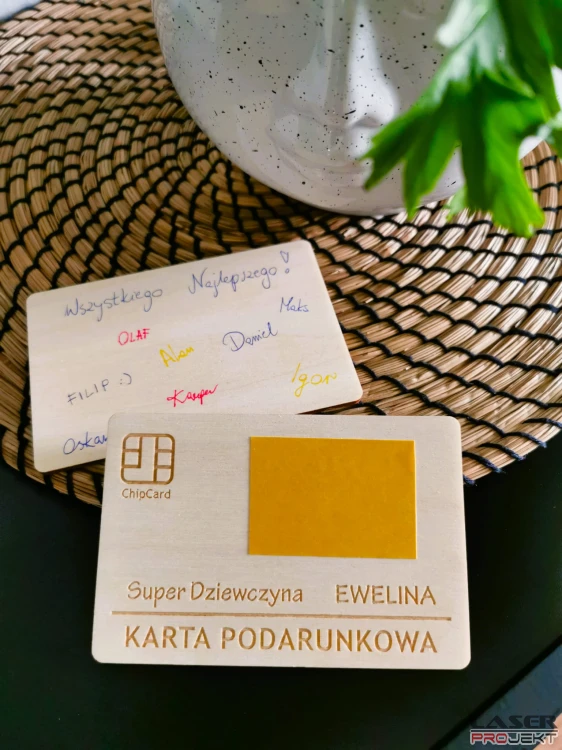 Wszystkiego Najlepszego!
Maks
OLAF
Alan
Daniel
FILIP :)
Kacper
Igor
Oskar
ChipCard
Super Dziewczyna EWELINA
KARTA PODARUNKOWA
LASER
PROJEKT